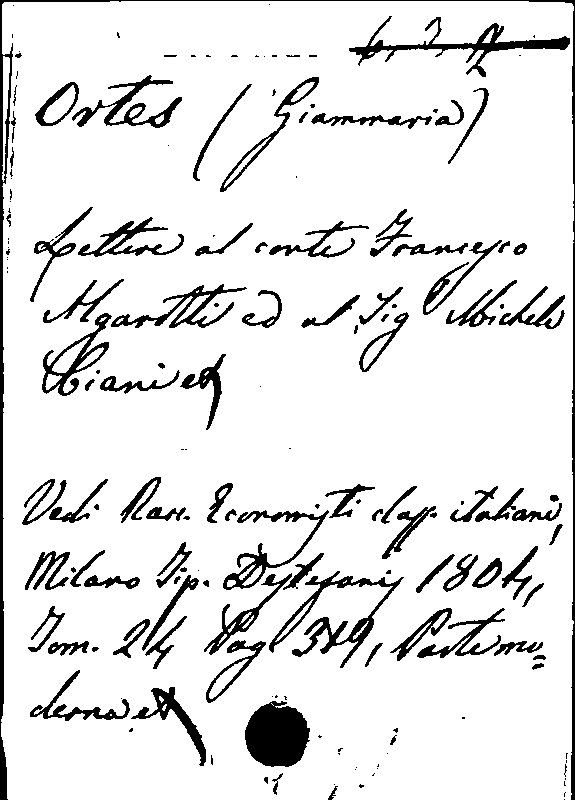 6. 3. Q
Ortes (Giammaria)
Lettere al conte Francesco
Algarotti ed al Sig Michele
Ciani et
Vedi Racc. Economisti class. italiani,
Milano Tip. Destefanis 1804,
Tom. 24 Pag. 389, Parte mo=
derna et